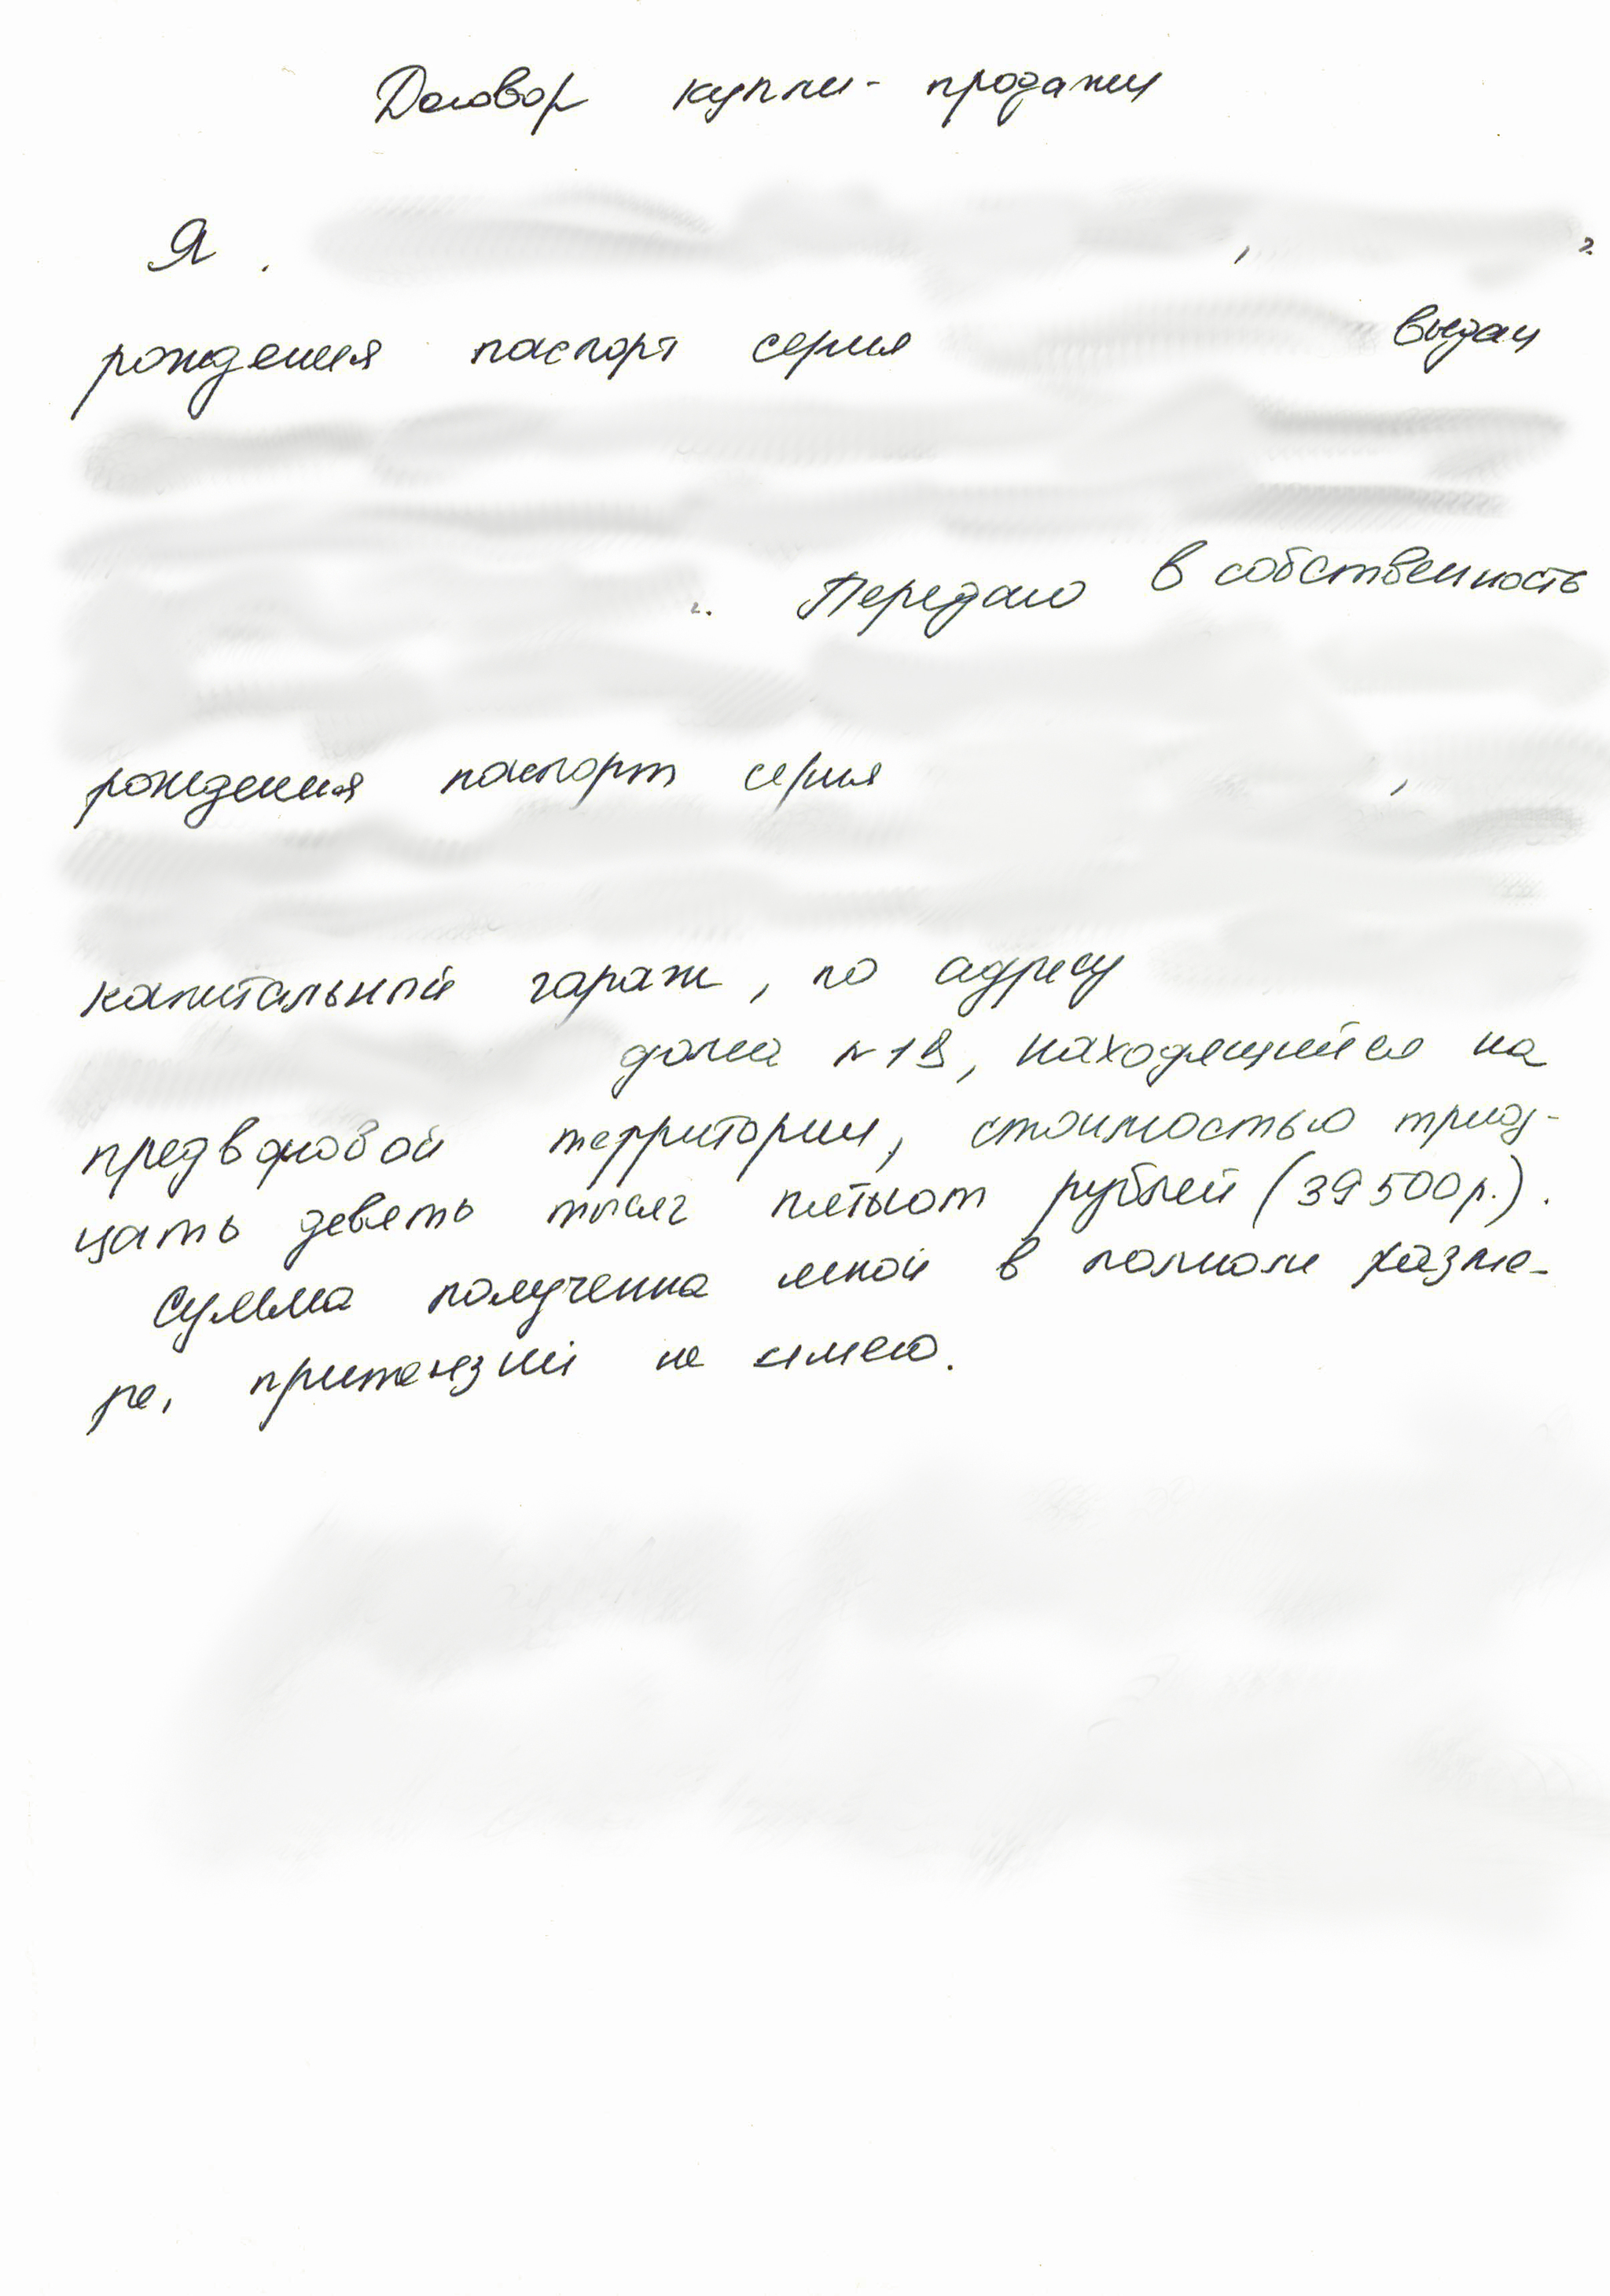 Договор купли-продажи
Я , г.
рождения паспорт серия выдан
г. Передаю в собственность
рождения паспорт серия ,
капитальный гараж, по адресу
дома №19, находящийся на
предворовой территории, стоимостью трид-
цать девять тысяч пятьсот рублей (39500р.).
Сумма полученна мной в полном разме-
ре, притензий не имею.